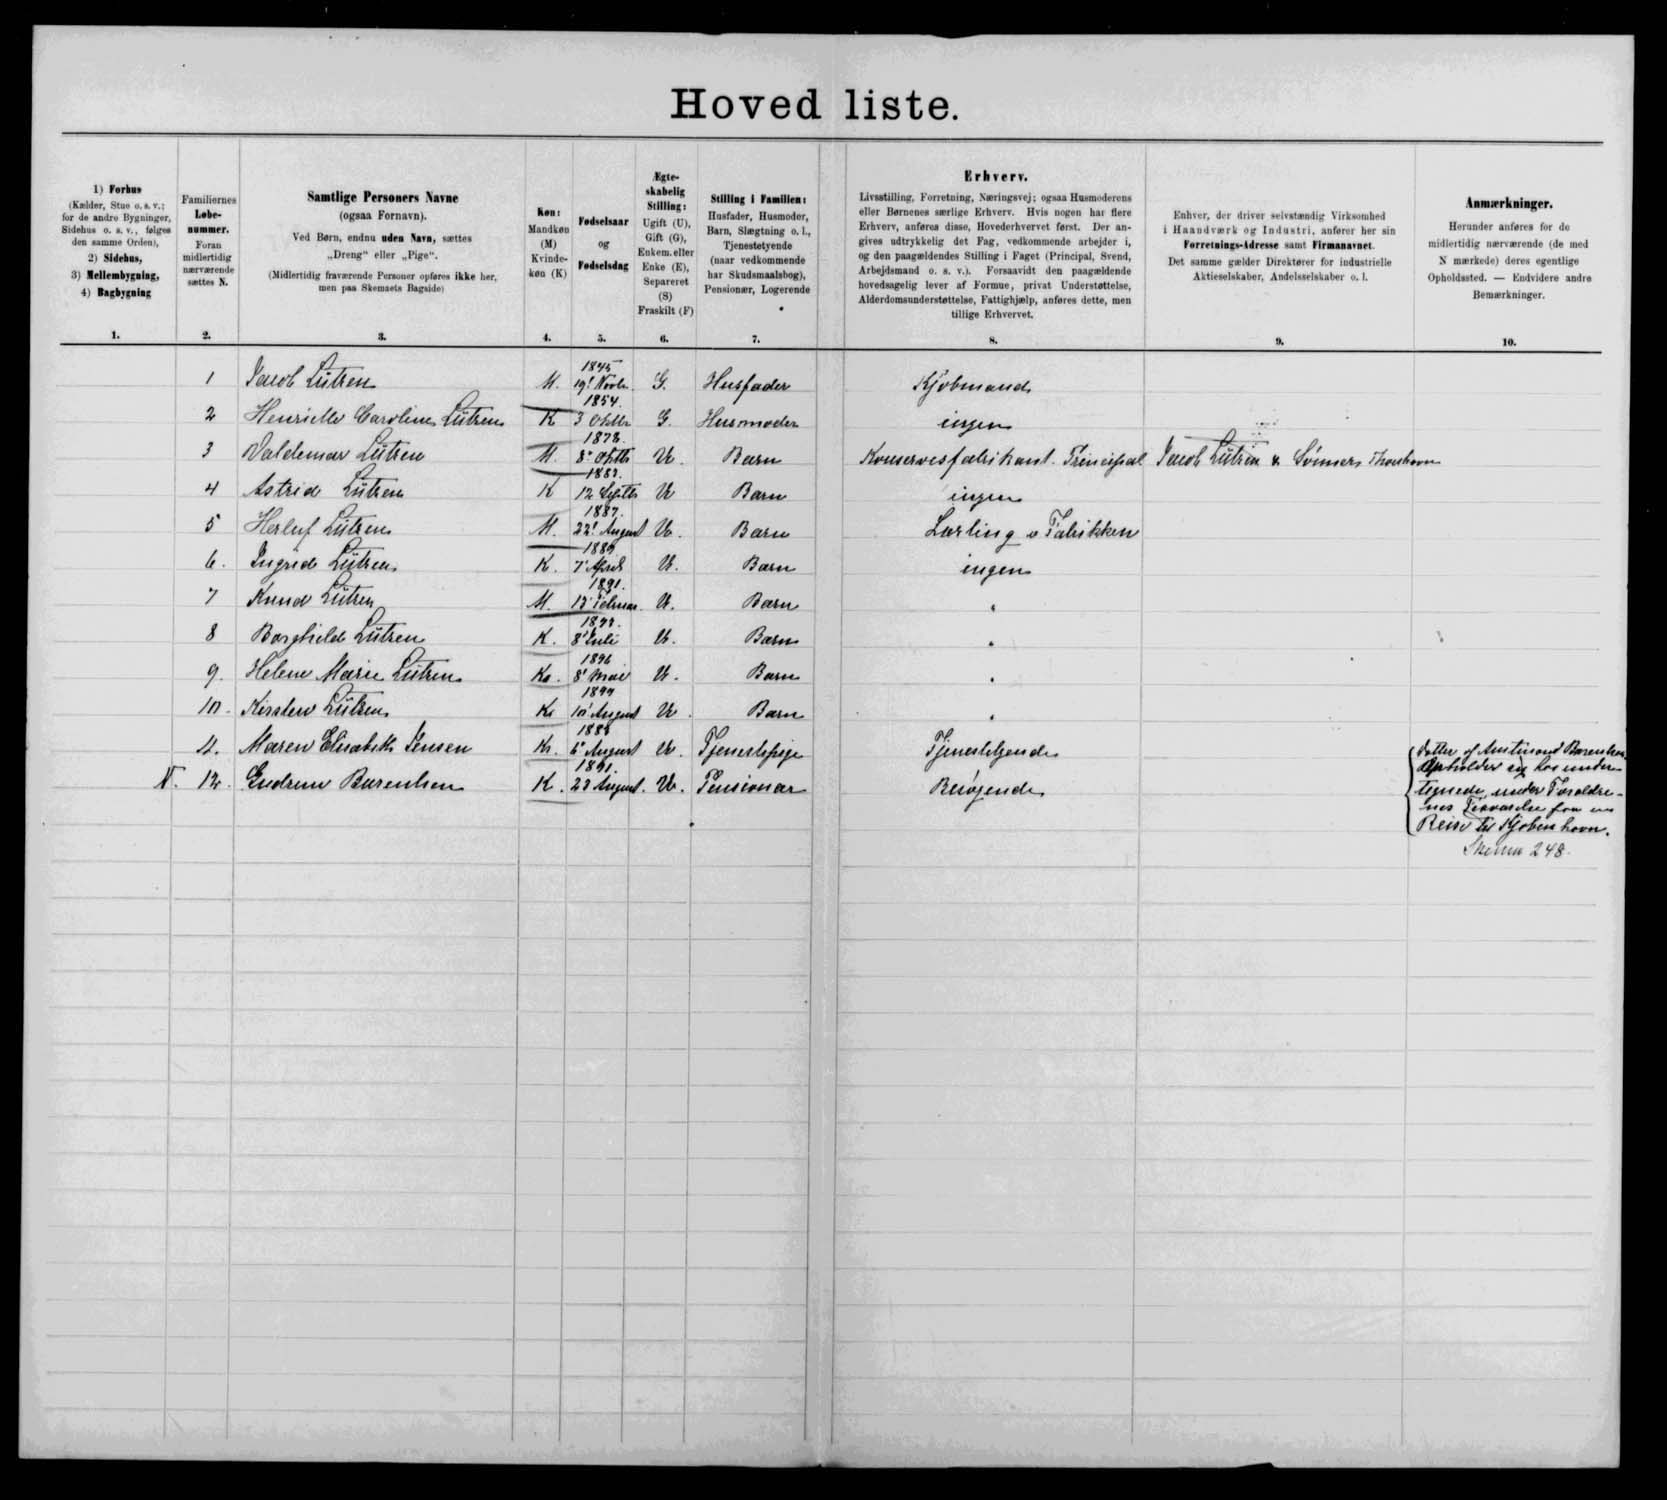 Hoved liste.
1) Forhus
(Kælder, Stue o. s. v.;
for de andre Bygninger,
Sidehus o. s. v., følges
den samme Orden),
2) Sidehus,
3) Mellembygning,
4) Bagbygning
1.
Familiernes
Løbe-
nummer.
Foran
midlertidig
nærværende
sættes N.
2.
Samtlige Personers Navne
(ogsaa Fornavn).
Ved Børn, endnu uden Navn, sættes
„Dreng" eller „Pige".
(Midlertidig fraværende Personer opføres ikke her,
men paa Skemaets Bagside)
3.
Køn:
Mandkøn
(M)
Kvinde-
køn (K)
4.
Fødselsaar
og
Fødselsdag
5.
Ægte-
skabelig
Stilling:
Ugift (U),
Gift (G),
Enkem. eller
Enke (E),
Separeret
(S)
Fraskilt (F)
6.
Stilling i Familien:
Husfader, Husmoder,
Barn, Slægtning o. l.,
Tjenestetyende
(naar vedkommende
har Skudsmaalsbog),
Pensionær, Logerende
7.
Erhverv.
Livsstilling, Forretning, Næringsvej; ogsaa Husmoderens
eller Børnenes særlige Erhverv. Hvis nogen har flere
Erhverv, anføres disse, Hovederhvervet først. Der an-
gives udtrykkelig det Fag, vedkommende arbejder i,
og den paagældendes Stilling i Faget (Principal, Svend,
Arbejdsmand o. s. v.). Forsaavidt den paagældende
hovedsagelig lever af Formue, privat Understøttelse,
Alderdomsunderstøttelse, Fattighjælp, anføres dette, men
tillige Erhvervet.
8.
Enhver, der driver selvstændig Virksomhed
i Haandværk og Industri, anfører her sin
Forretnings-Adresse samt Firmanavnet.
Det samme gælder Direktører for industrielle
Aktieselskaber, Andelsselskaber o. l.
9.
Anmærkninger.
Herunder anføres for de
midlertidig nærværende (de med
N mærkede) deres egentlige
Opholdssted. — Endvidere andre
Bemærkninger.
10.
1 Jacob Lützen M. 1845 19' Novbr. G. Husfader Kjøbmand
2 Henriette Caroline Lützen K 1854. 3 Oktbr G. Husmoder ingen
3 Valdemar Lützen M. 1878. 8' Oktbr U. Barn Konservesfabrikant. Principal Jacob Lützen & Sønner, Thorshavn
4 Astrid Lützen K 1883. 12 Septbr U Barn ingen
5 Herluf Lützen M. 1887. 22' August U. Barn Lærling v Fabrikken
6. Ingrid Lützen K. 1889 7' April U. Barn ingen
7 Knud Lützen M. 1891. Februar U. Barn "
8 Borghild Lützen K. 8' Juli U. Barn "
9. Helene Marie Lützen K. 1896 8' Mai U. Barn "
10. Kirsten Lützen K. 10' August U. Barn "
11. Maren Elisabeth Jensen K. August U. Tjenestepige Tjenestetyende
N. 12. Gudrun Barentsen K. 1891. 23 August. U. Pensionær Besøgende
Datter af Amtmand Barentsen.
Opholder sig hos under-
tegnede under Forældre-
nes Fraværelse paa en
Reise til Kjøbenhavn.
Skema 248.